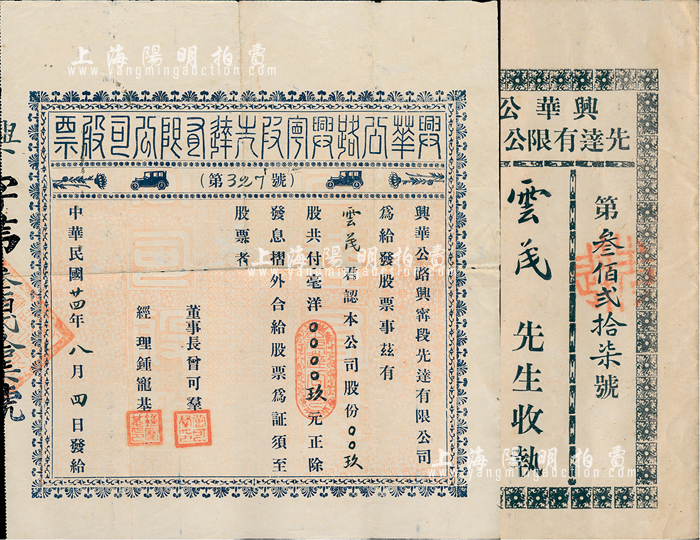 上海陽明拍賣
www.yangmingauction.com
興華公路興寧段先達有限公司股票
(第327號)
興華公路興寧段先達有限公司
為給發股票事茲有
雲茂君認本公司股份00玖
股共付毫洋0000玖元正除
發息摺外合給股票為証須至
股票者
董事長曾可羣
經理鍾寵基
中華民國廿四年八月四日發給
興華公
先達有限公
第叁佰貳拾柒號
雲茂先生收執
上海陽明拍賣
www.yangmingauction.com